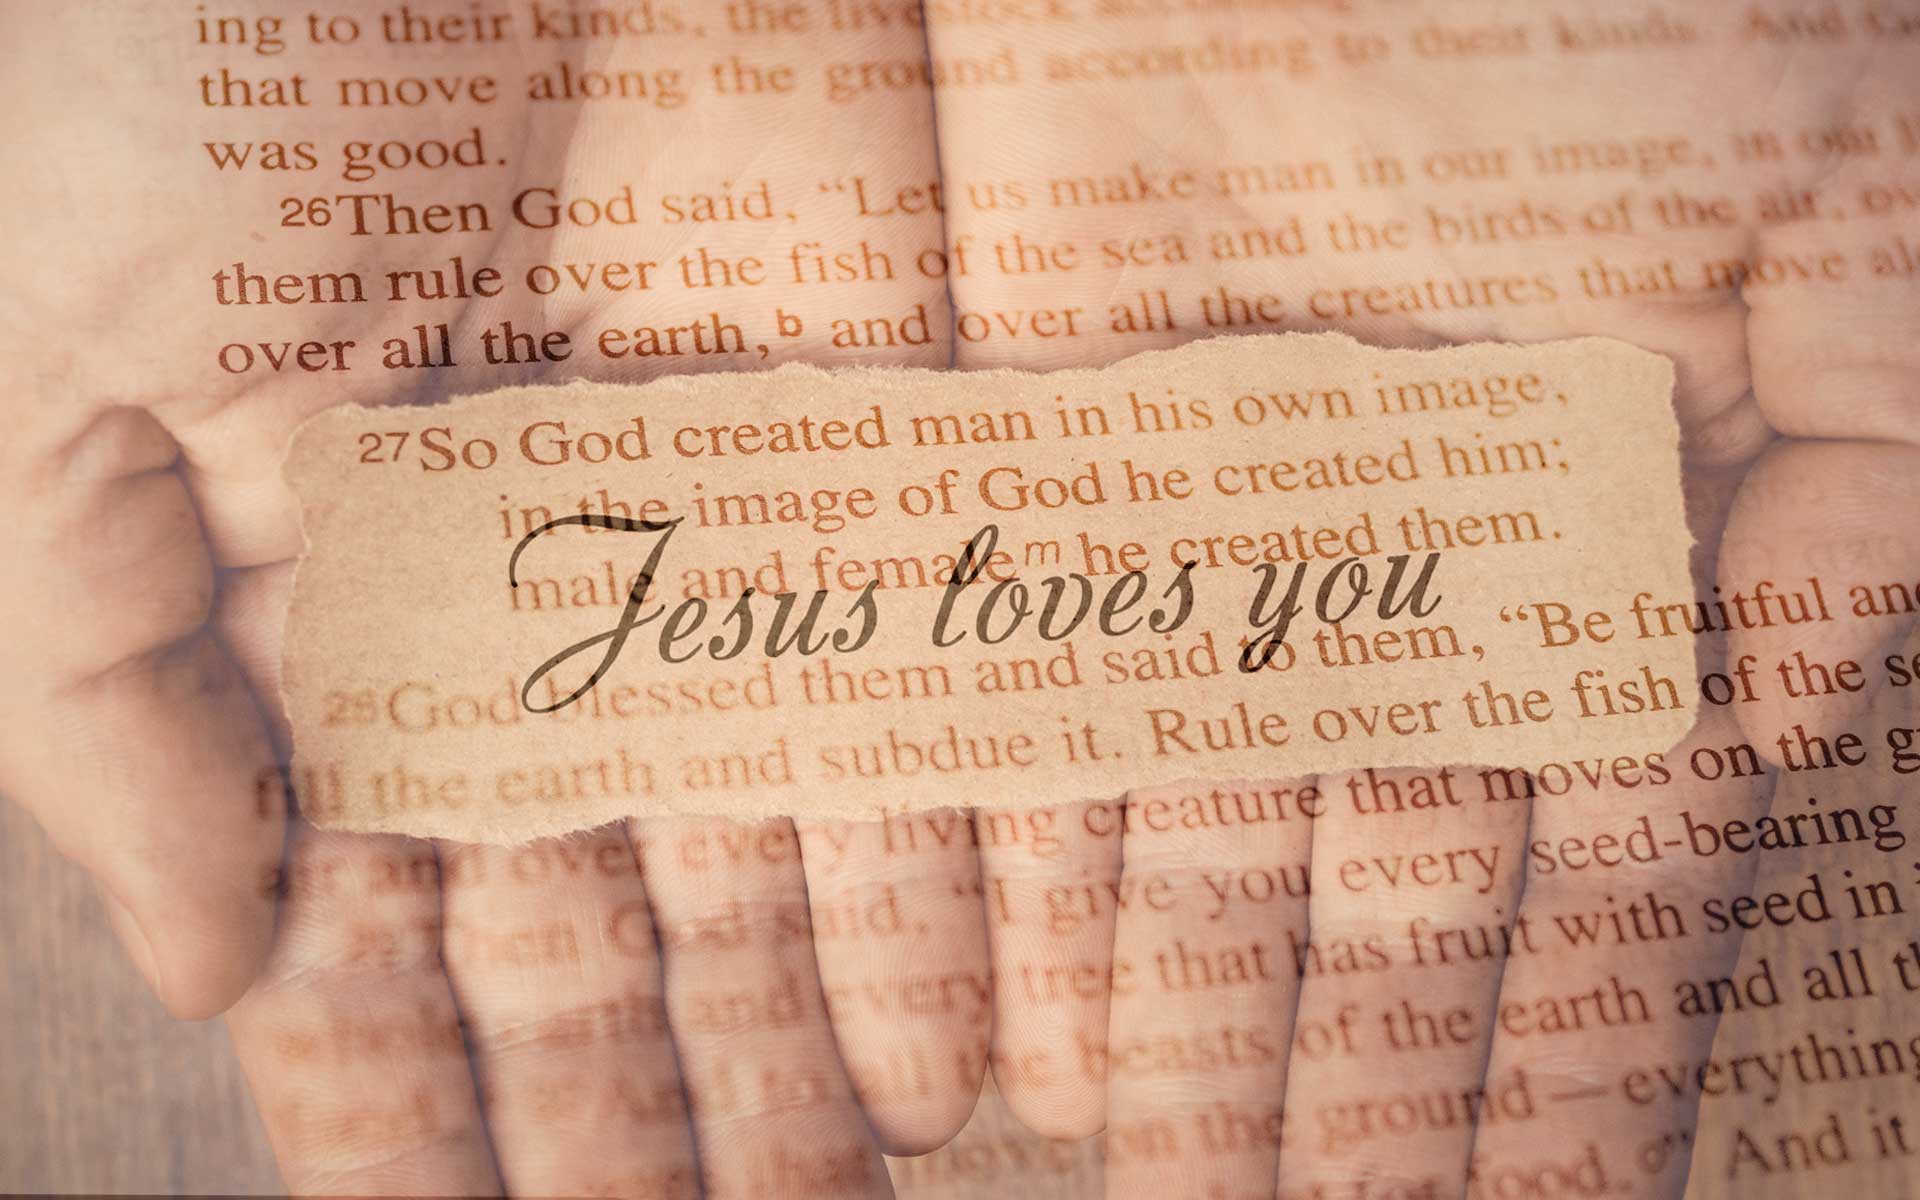 ing to their kinds, the livestock according
that move along the ground according to their kinds. And
was good.
26Then God said, “Let us make man in our image, in our
them rule over the fish of the sea and the birds of the air,
over all the earth,b and over all the creatures that move
27So God created man in his own image,
in the image of God he created him;
male and femalem he created them.
Jesus loves you
28God blessed them and said to them, “Be fruitful and
fill the earth and subdue it. Rule over the fish of the
air and over every living creature that moves on the
29Then God said, “I give you every seed-bearing
earth and every tree that has fruit with seed in
all the beasts of the earth and all
move on the ground—everything
food.” And it